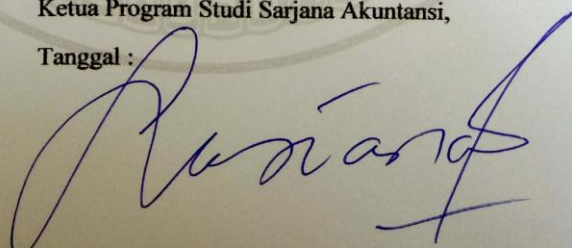 Ketua Program Studi Sarjana Akuntansi,
Tanggal :